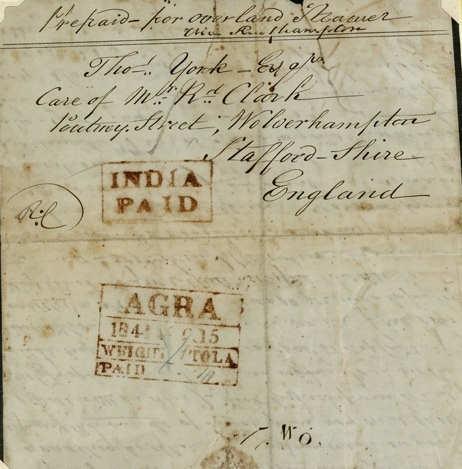 Prepaid - for overland Steamer
via Southampton
Thos. York - Esqr.
Care of Mr. Rd. Clark
Street, Wolverhampton
Stafford-Shire
England
INDIA
PAID
AGRA
184 15
WEIGH TOLA
PAID
Wo.